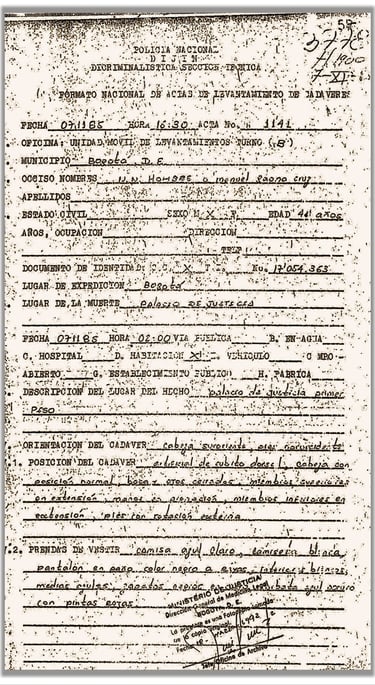 59
POLICIA NACIONAL
D I J I N
D.CRIMINALISTICA SECCION TECNICA
FORMATO NACIONAL DE ACTAS DE LEVANTAMIENTO DE CADAVERES
FECHA 071185 HORA 16:30 ACTA No. 1141
OFICINA: UNIDAD MOVIL DE LEVANTAMIENTOS TURNO ("B")
MUNICIPIO Bogota D.E.
OCCISO NOMBRES N.N. HOMBRE o manuel cruz
APELLIDOS
ESTADO CIVIL SEXO M X F EDAD años
AÑOS, OCUPACION DIRECCION
TELF
DOCUMENTO DE IDENTIDAD: C.C. X T. No. 17'054.363
LUGAR DE EXPEDICION Bogotá
LUGAR DE LA MUERTE PALACIO DE JUSTICIA
FECHA 071185 HORA 02:00 VIA PUBLICA B. EN AGUA
C. HOSPITAL D. HABITACION X E. VEHICULO C MPO
ABIERTO G. ESTABLECIMIENTO PUBLICO H. FABRICA
DESCRIPCION DEL LUGAR DEL HECHO palacio de justicia primer
PISO
ORIENTACION DEL CADAVER cabeza suroriente, pies noroccidente
1. POSICION DEL CADAVER artificial de cubito dorsal, cabeza en
posición normal, boca y ojos cerrados, miembros superiores
en extensión, manos en pronación, miembros inferiores en
extensión, pies con rotación externa
2. PRENDAS DE VESTIR camisa azul claro, camiseta blanca,
pantalón en paño color negro a rayas, interiores blancos,
medias azules, zapatos negros corbata azul oscuro
con pintas rojas.
MINISTERIO DE JUSTICIA
Dirección General de Medicina Legal
BOGOTA, D. E.
Jefe Oficina de Archivo